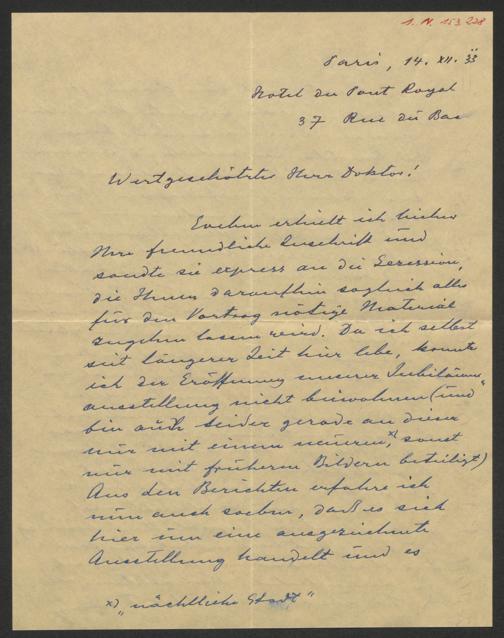 I. N. 153 228
Paris, 14. XII. 33
Hotel du Pont Royal
37 Rue du Bac
Wertgeschätzter Herr Doktor!
Soeben erhielt ich hieher
Ihre freundliche Zuschrift und
sandte sie express an die Sezession,
die Ihnen daraufhin sogleich alles
für den Vortrag nötige Material
zugehen lassen wird. Da ich selbst
seit längerer Zeit hier lebe, konnte
ich der Eröffnung unserer Jubiläums-
ausstellung nicht beiwohnen (und
bin auch leider gerade an dieser
nur mit einem neueren, x) sonst
nur mit früheren Bildern beteiligt)
Aus den Berichten erfahre ich
nun auch soeben, daß es sich
hier um eine ausgezeichnete
Ausstellung handelt und es
x) „nächtliche Stadt"